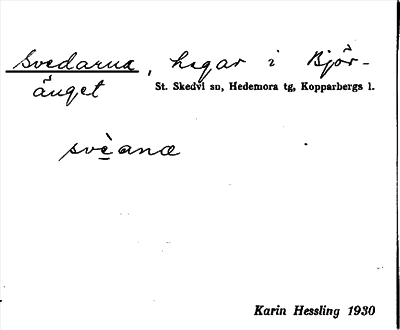 Svedarna, hagar i Björ-
änget St. Skedvi sn, Hedemora tg, Kopparbergs l.
svèana
Karin Hessling 1930